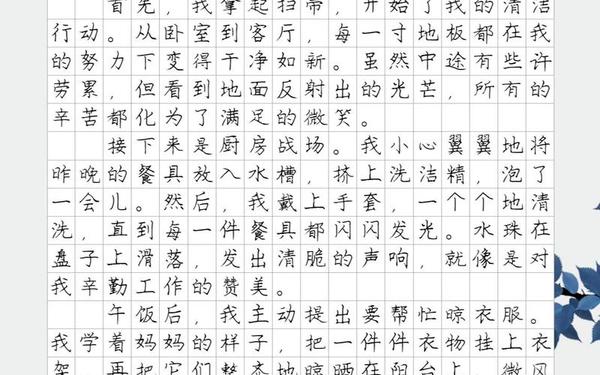 首先，我拿起扫帚，开始了我的清洁
行动。从卧室到客厅，每一寸地板都在我
的努力下变得干净如新。虽然中途有些许
劳累，但看到地面反射出的光芒，所有的
辛苦都化为了满足的微笑。
接下来是厨房战场。我小心翼翼地将
昨晚的餐具放入水槽，挤上洗洁精，泡了
一会儿。然后，我戴上手套，一个个地清
洗，直到每一件餐具都闪闪发光。水珠在
盘子上滑落，发出清脆的声响，就像是对
我辛勤工作的赞美。
午饭后，我主动提出要帮忙晾衣服。
我学着妈妈的样子，把一件件衣物挂上衣
架，再把它们整齐地晾晒在阳台上。微风